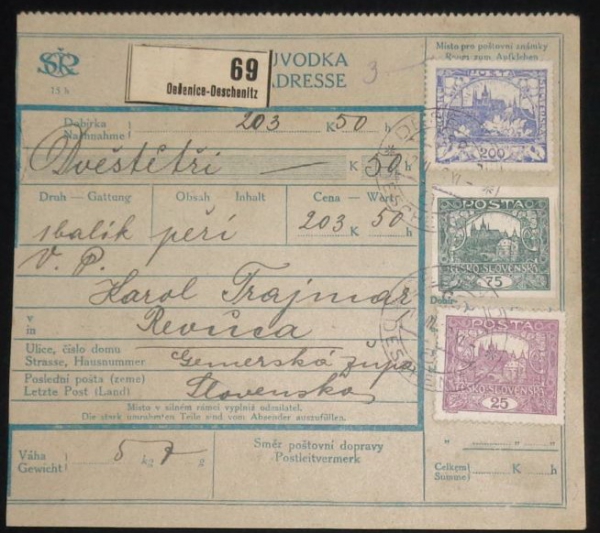 SČR
15 h
69
Oešenice-Oeschenitz
ŮVODKA
ADRESSE
3
Místo pro poštovní známky
Raum zum Aufkleben
Dobírka
Nachnahme
203 K 50 h
Dvěstětři — K 50 h
Druh — Gattung
Obsah Inhalt
Cena — Wert
balík peří
203 K 50 h
V. P.
Karol Trajmar
v
in
Revúca
Ulice, číslo domu
Strasse, Hausnummer
Gemerská župa
Poslední pošta (země)
Letzte Post (Land)
Slovensko
Místo v silném rámci vyplniž odesilatel.
Die stark umrahmten Teile sind vom Absender auszufüllen.
Váha
Gewicht
5 kg 7 g
Směr poštovní dopravy
Postleitvermerk
200
POŠTA
ČESKO-SLOVENSKÁ
75
Dobír-
POŠTA
ČESKO-SLOVENSKÁ
25
" "
Celkem
Summe
K h